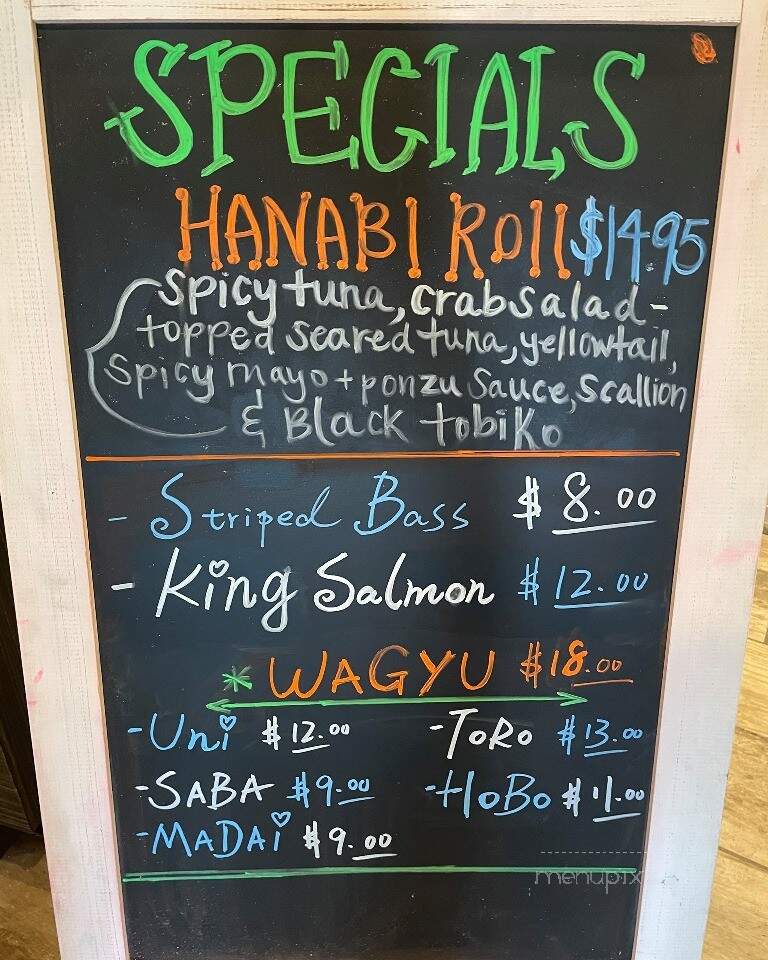 SPECIALS
HANABI Roll $14.95
spicy tuna, crab salad -
topped seared tuna, yellowtail,
spicy mayo + ponzu sauce, scallion
& Black tobiko
- Striped Bass $8.00
- King Salmon $12.00
* WAGYU $18.00
- Uni $12.00 - ToRo $13.00
- SABA $9.00 - HoBo $11.00
- MADAi $9.00
menupix